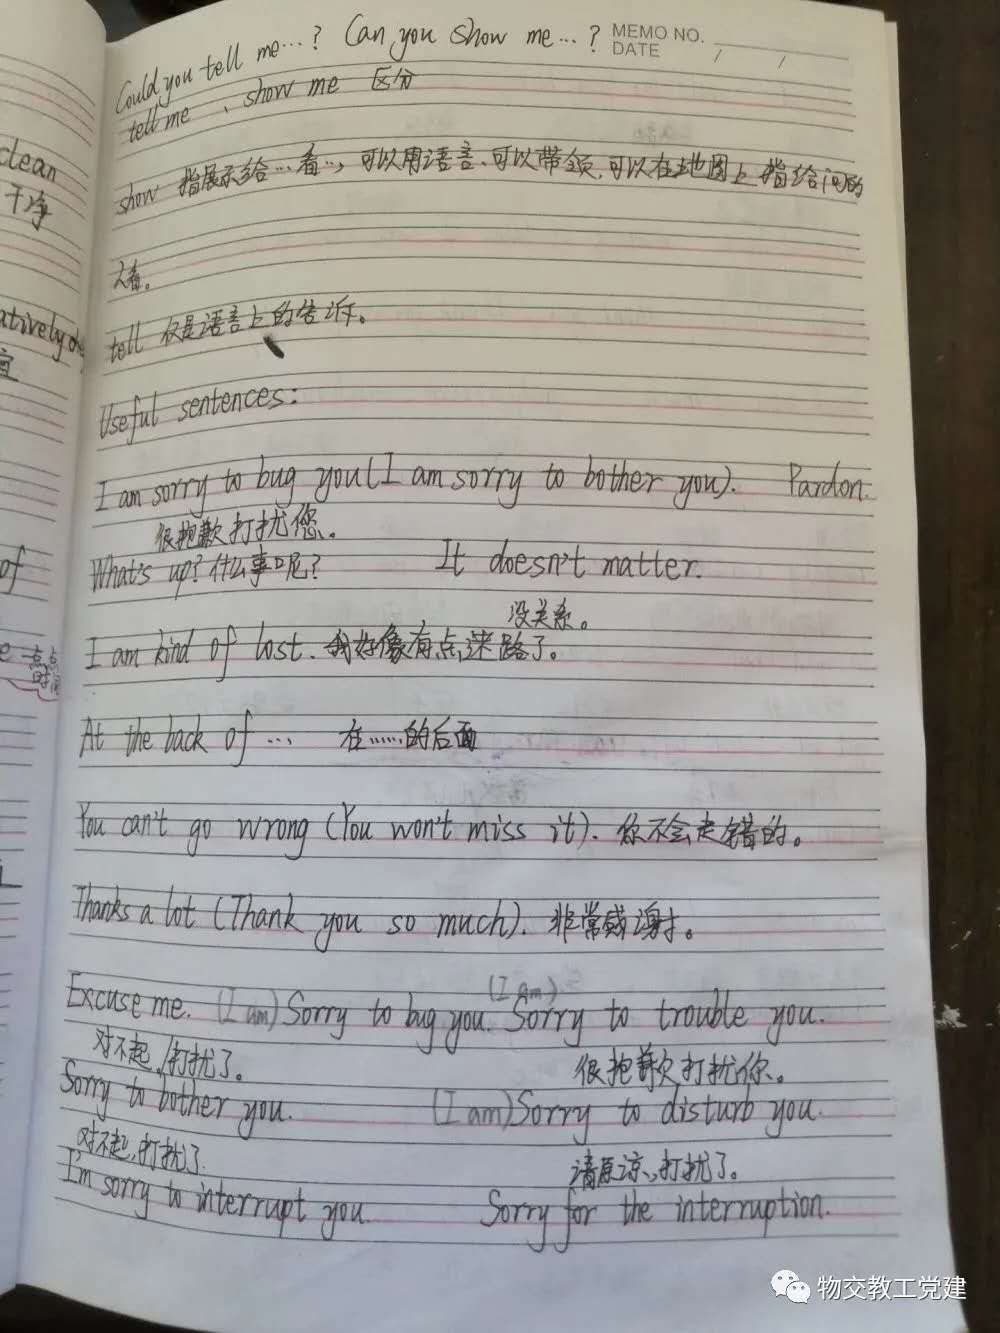 Could you tell me...? Can you show me...? MEMO NO.
DATE / /
tell me、show me 区分
show 指展示给…看…,可以用语言、可以带领,可以在地图上指给问的
人看。
tell 仅是语言上的告诉。
Useful sentences:
I am sorry to bug you(I am sorry to bother you). Pardon.
很抱歉打扰您。
What's up? 什么事呢? It doesn't matter.
没关系。
I am kind of lost. 我好像有点迷路了。
At the back of ... 在……的后面
You can't go wrong (You won't miss it). 你不会走错的。
Thanks a lot (Thank you so much). 非常感谢。
(I am)
Excuse me. (I am) Sorry to bug you. Sorry to trouble you.
对不起,打扰了。 很抱歉打扰你。
Sorry to bother you. (I am) Sorry to disturb you.
对不起,打扰了. 请原谅,打扰了。
I'm sorry to interrupt you. Sorry for the interruption.
clean
干净
atively
of
点点
时间
物交教工党建